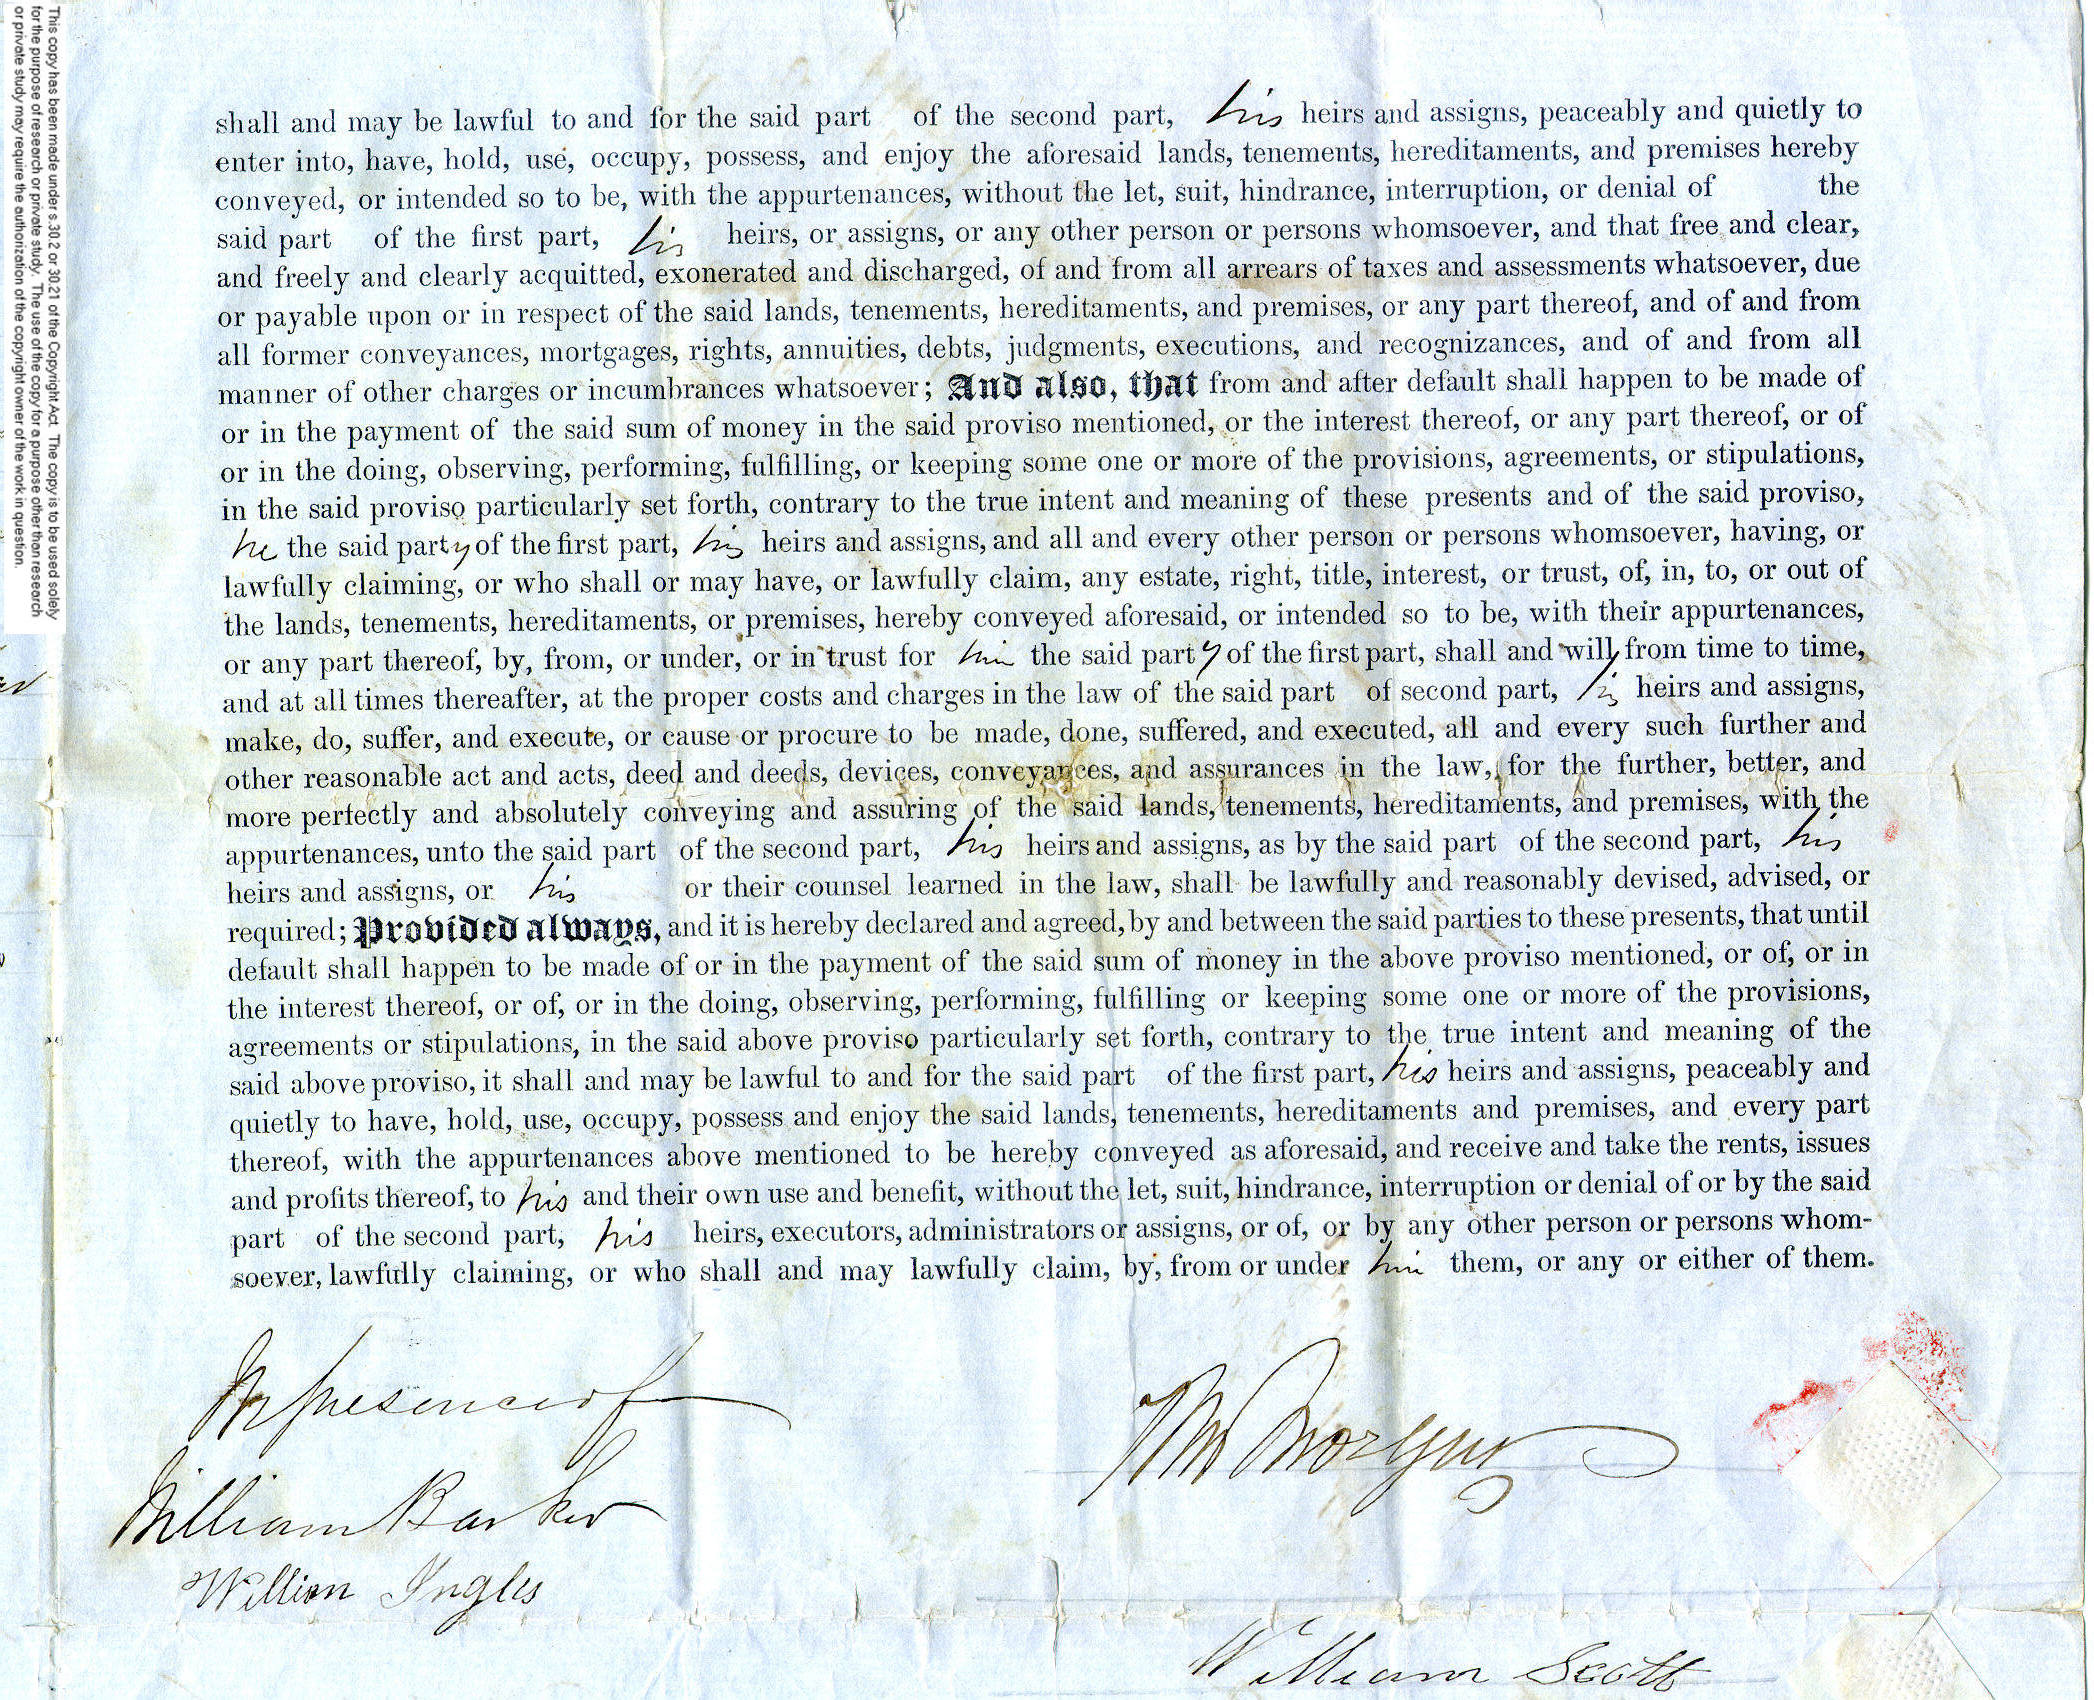 This copy has been made under s.30.2 or 30.21 of the Copyright Act. The copy is to be used solely
for the purpose of research or private study. The use of the copy for a purpose other than research
or private study may require the authorization of the copyright owner of the work in question.
shall and may be lawful to and for the said part of the second part, his heirs and assigns, peaceably and quietly to
enter into, have, hold, use, occupy, possess, and enjoy the aforesaid lands, tenements, hereditaments, and premises hereby
conveyed, or intended so to be, with the appurtenances, without the let, suit, hindrance, interruption, or denial of the
said part of the first part, his heirs, or assigns, or any other person or persons whomsoever, and that free and clear,
and freely and clearly acquitted, exonerated and discharged, of and from all arrears of taxes and assessments whatsoever, due
or payable upon or in respect of the said lands, tenements, hereditaments, and premises, or any part thereof, and of and from
all former conveyances, mortgages, rights, annuities, debts, judgments, executions, and recognizances, and of and from all
manner of other charges or incumbrances whatsoever; And also, that from and after default shall happen to be made of
or in the payment of the said sum of money in the said proviso mentioned, or the interest thereof, or any part thereof, or of
or in the doing, observing, performing, fulfilling, or keeping some one or more of the provisions, agreements, or stipulations,
in the said proviso particularly set forth, contrary to the true intent and meaning of these presents and of the said proviso,
he the said party of the first part, his heirs and assigns, and all and every other person or persons whomsoever, having, or
lawfully claiming, or who shall or may have, or lawfully claim, any estate, right, title, interest, or trust, of, in, to, or out of
the lands, tenements, hereditaments, or premises, hereby conveyed aforesaid, or intended so to be, with their appurtenances,
or any part thereof, by, from, or under, or in trust for him the said party of the first part, shall and will from time to time,
and at all times thereafter, at the proper costs and charges in the law of the said part of second part, his heirs and assigns,
make, do, suffer, and execute, or cause or procure to be made, done, suffered, and executed, all and every such further and
other reasonable act and acts, deed and deeds, devices, conveyances, and assurances in the law, for the further, better, and
more perfectly and absolutely conveying and assuring of the said lands, tenements, hereditaments, and premises, with the
appurtenances, unto the said part of the second part, his heirs and assigns, as by the said part of the second part, his
heirs and assigns, or his or their counsel learned in the law, shall be lawfully and reasonably devised, advised, or
required; Provided always, and it is hereby declared and agreed, by and between the said parties to these presents, that until
default shall happen to be made of or in the payment of the said sum of money in the above proviso mentioned, or of, or in
the interest thereof, or of, or in the doing, observing, performing, fulfilling or keeping some one or more of the provisions,
agreements or stipulations, in the said above proviso particularly set forth, contrary to the true intent and meaning of the
said above proviso, it shall and may be lawful to and for the said part of the first part, his heirs and assigns, peaceably and
quietly to have, hold, use, occupy, possess and enjoy the said lands, tenements, hereditaments and premises, and every part
thereof, with the appurtenances above mentioned to be hereby conveyed as aforesaid, and receive and take the rents, issues
and profits thereof, to his and their own use and benefit, without the let, suit, hindrance, interruption or denial of or by the said
part of the second part, his heirs, executors, administrators or assigns, or of, or by any other person or persons whom-
soever, lawfully claiming, or who shall and may lawfully claim, by, from or under him them, or any or either of them.
In presence of
Morgan
William Barker
William Ingles
William Scott